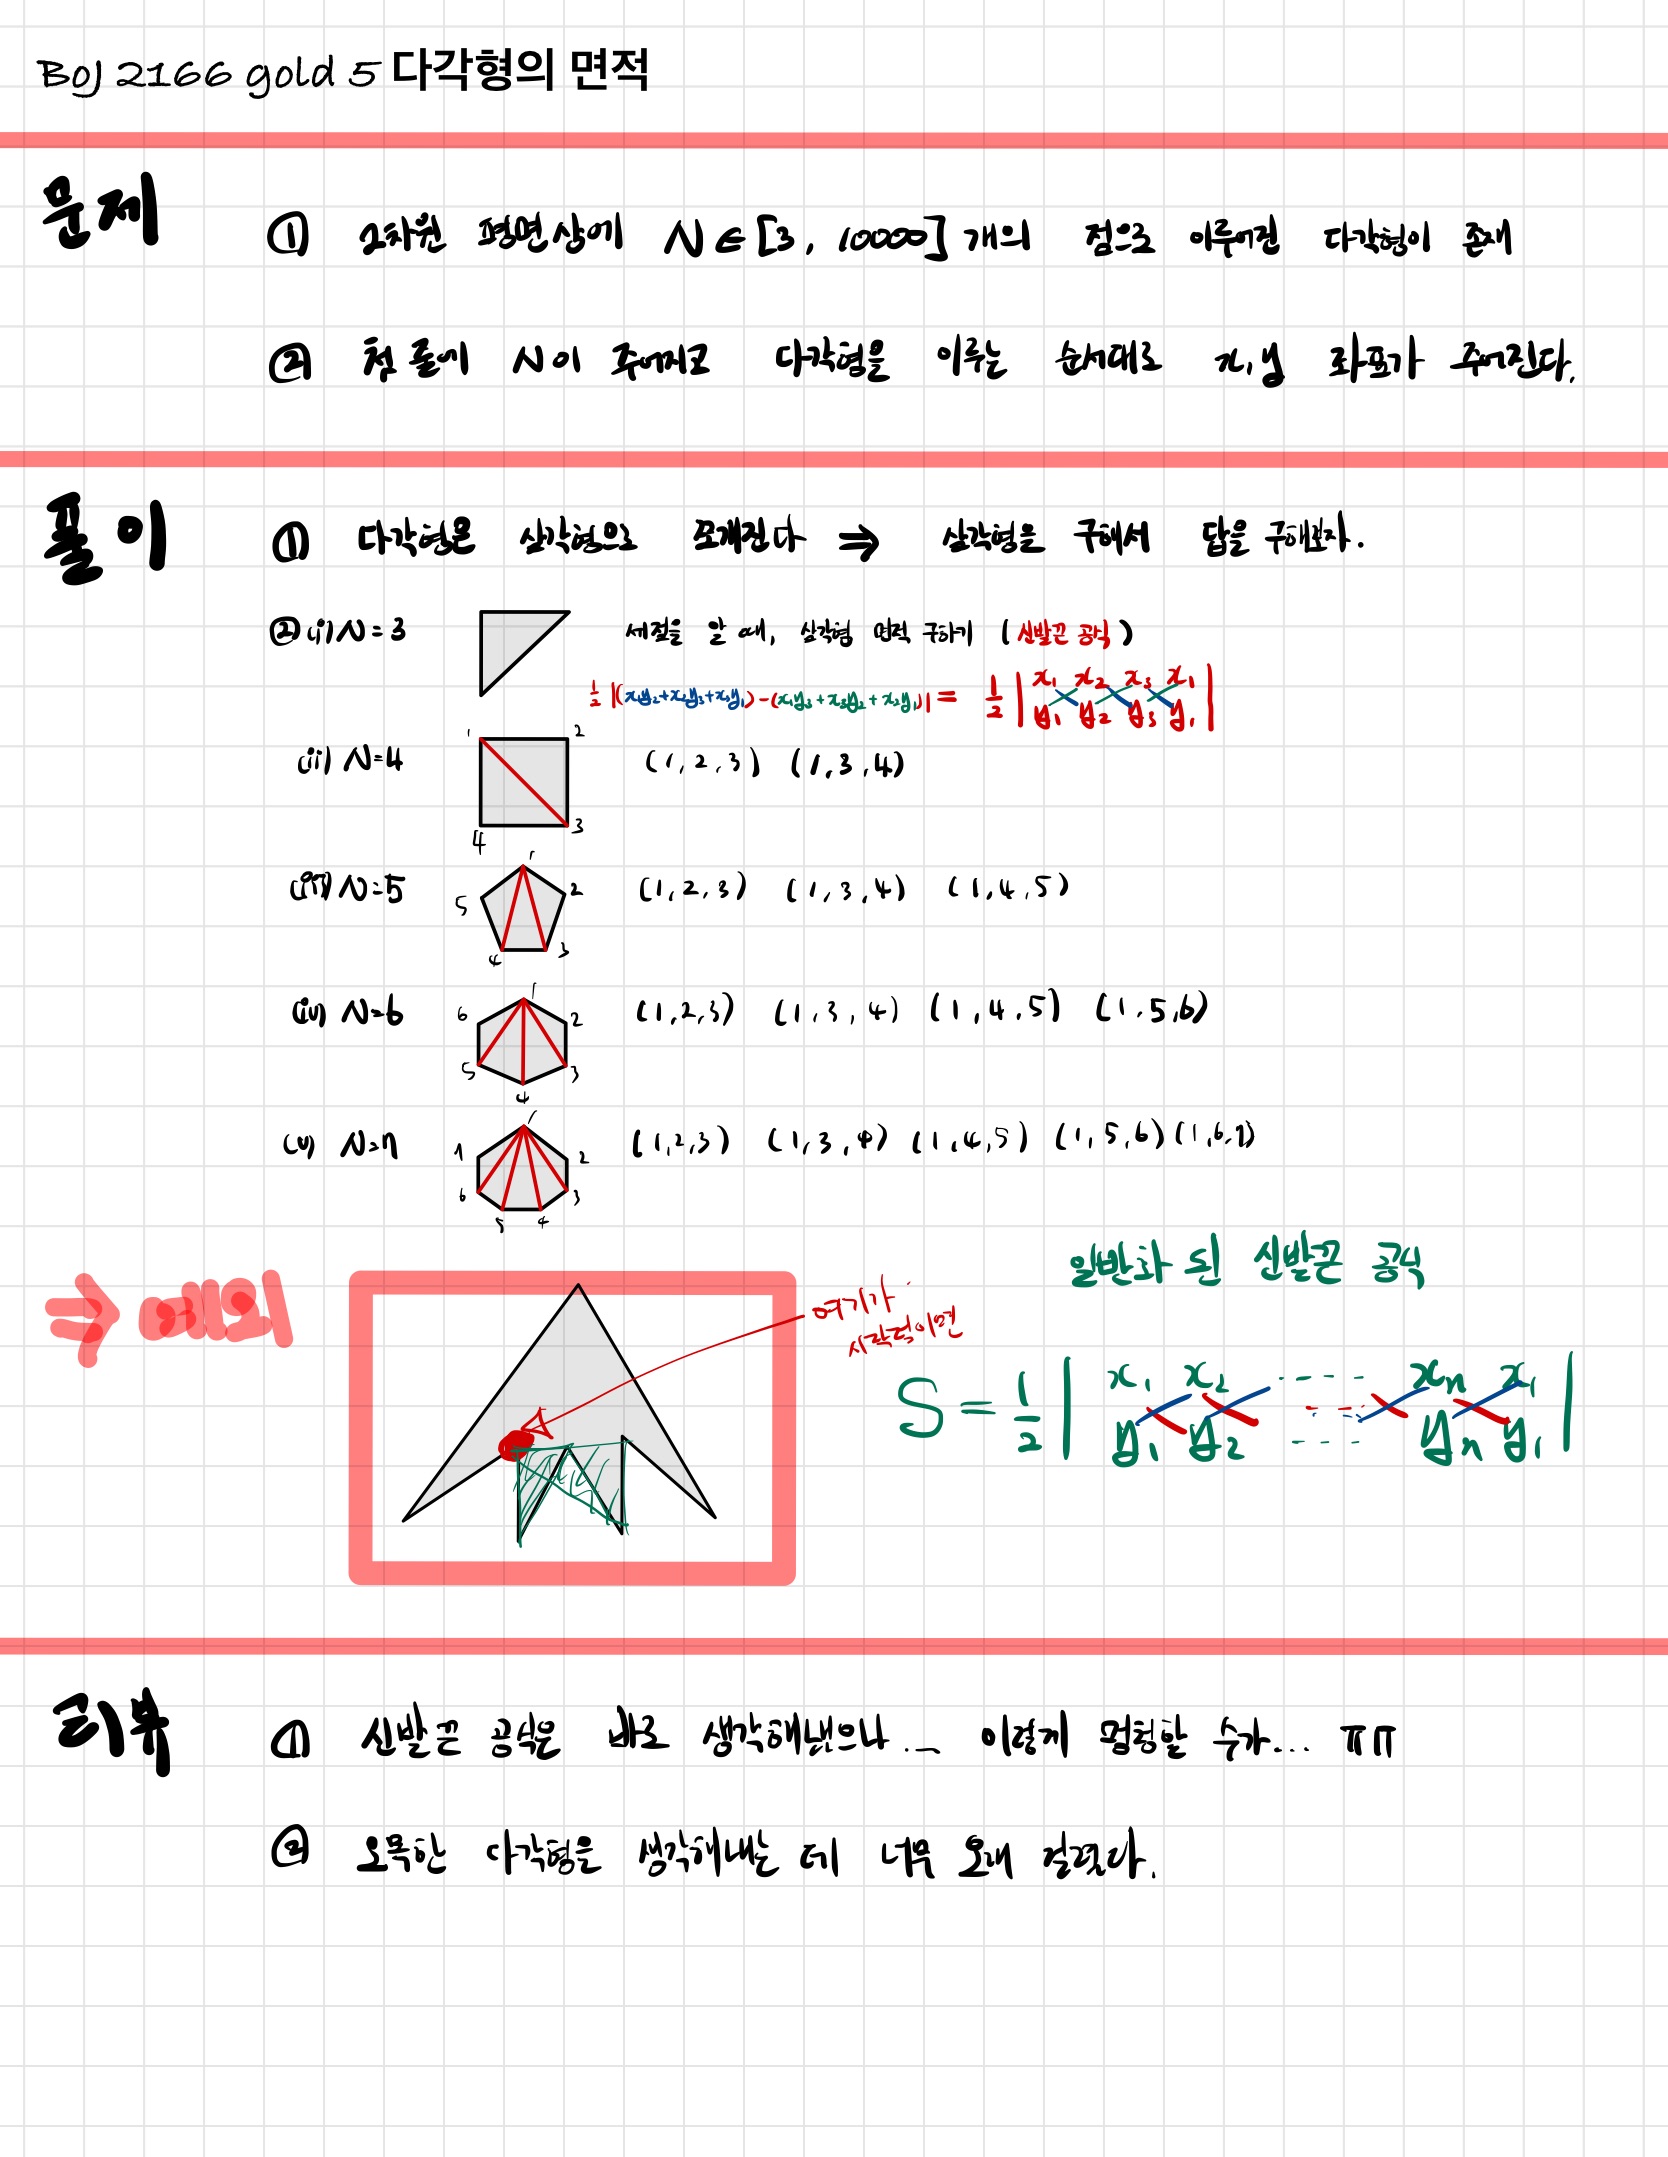 BOJ 2166 gold 5 다각형의 면적
문제
① 2차원 평면상에 N∈[3, 10000]개의 점으로 이루어진 다각형이 존재
② 첫 줄에 N이 주어지고 다각형을 이루는 순서대로 x, y 좌표가 주어진다.
풀이
① 다각형은 삼각형으로 쪼개진다 ⇒ 삼각형을 구해서 답을 구해보자.
② (i) N=3 세점을 알 때, 삼각형 면적 구하기 (신발끈 공식)
1/2 |(x₁y₂+x₂y₃+x₃y₁)-(x₁y₃+x₃y₂+x₂y₁)| = 1/2 | x₁ x₂ x₃ x₁
y₁ y₂ y₃ y₁ |
(ii) N=4 1 2 3 4 (1,2,3) (1,3,4)
(iii) N=5 1 2 3 4 5 (1,2,3) (1,3,4) (1,4,5)
(iv) N=6 1 2 3 4 5 6 (1,2,3) (1,3,4) (1,4,5) (1,5,6)
(v) N=7 1 2 3 4 5 6 7 (1,2,3) (1,3,4) (1,4,5) (1,5,6) (1,6,7)
⇒ 예외
여기가
시작점이면
일반화 된 신발끈 공식
S = 1/2 | x₁ x₂ ----- xₙ x₁
y₁ y₂ --- yₙ y₁ |
리뷰
① 신발끈 공식은 바로 생각해냈으나... 이렇게 멍청할 수가... ㅠㅠ
② 오목한 다각형을 생각해내는 데 너무 오래 걸렸다.